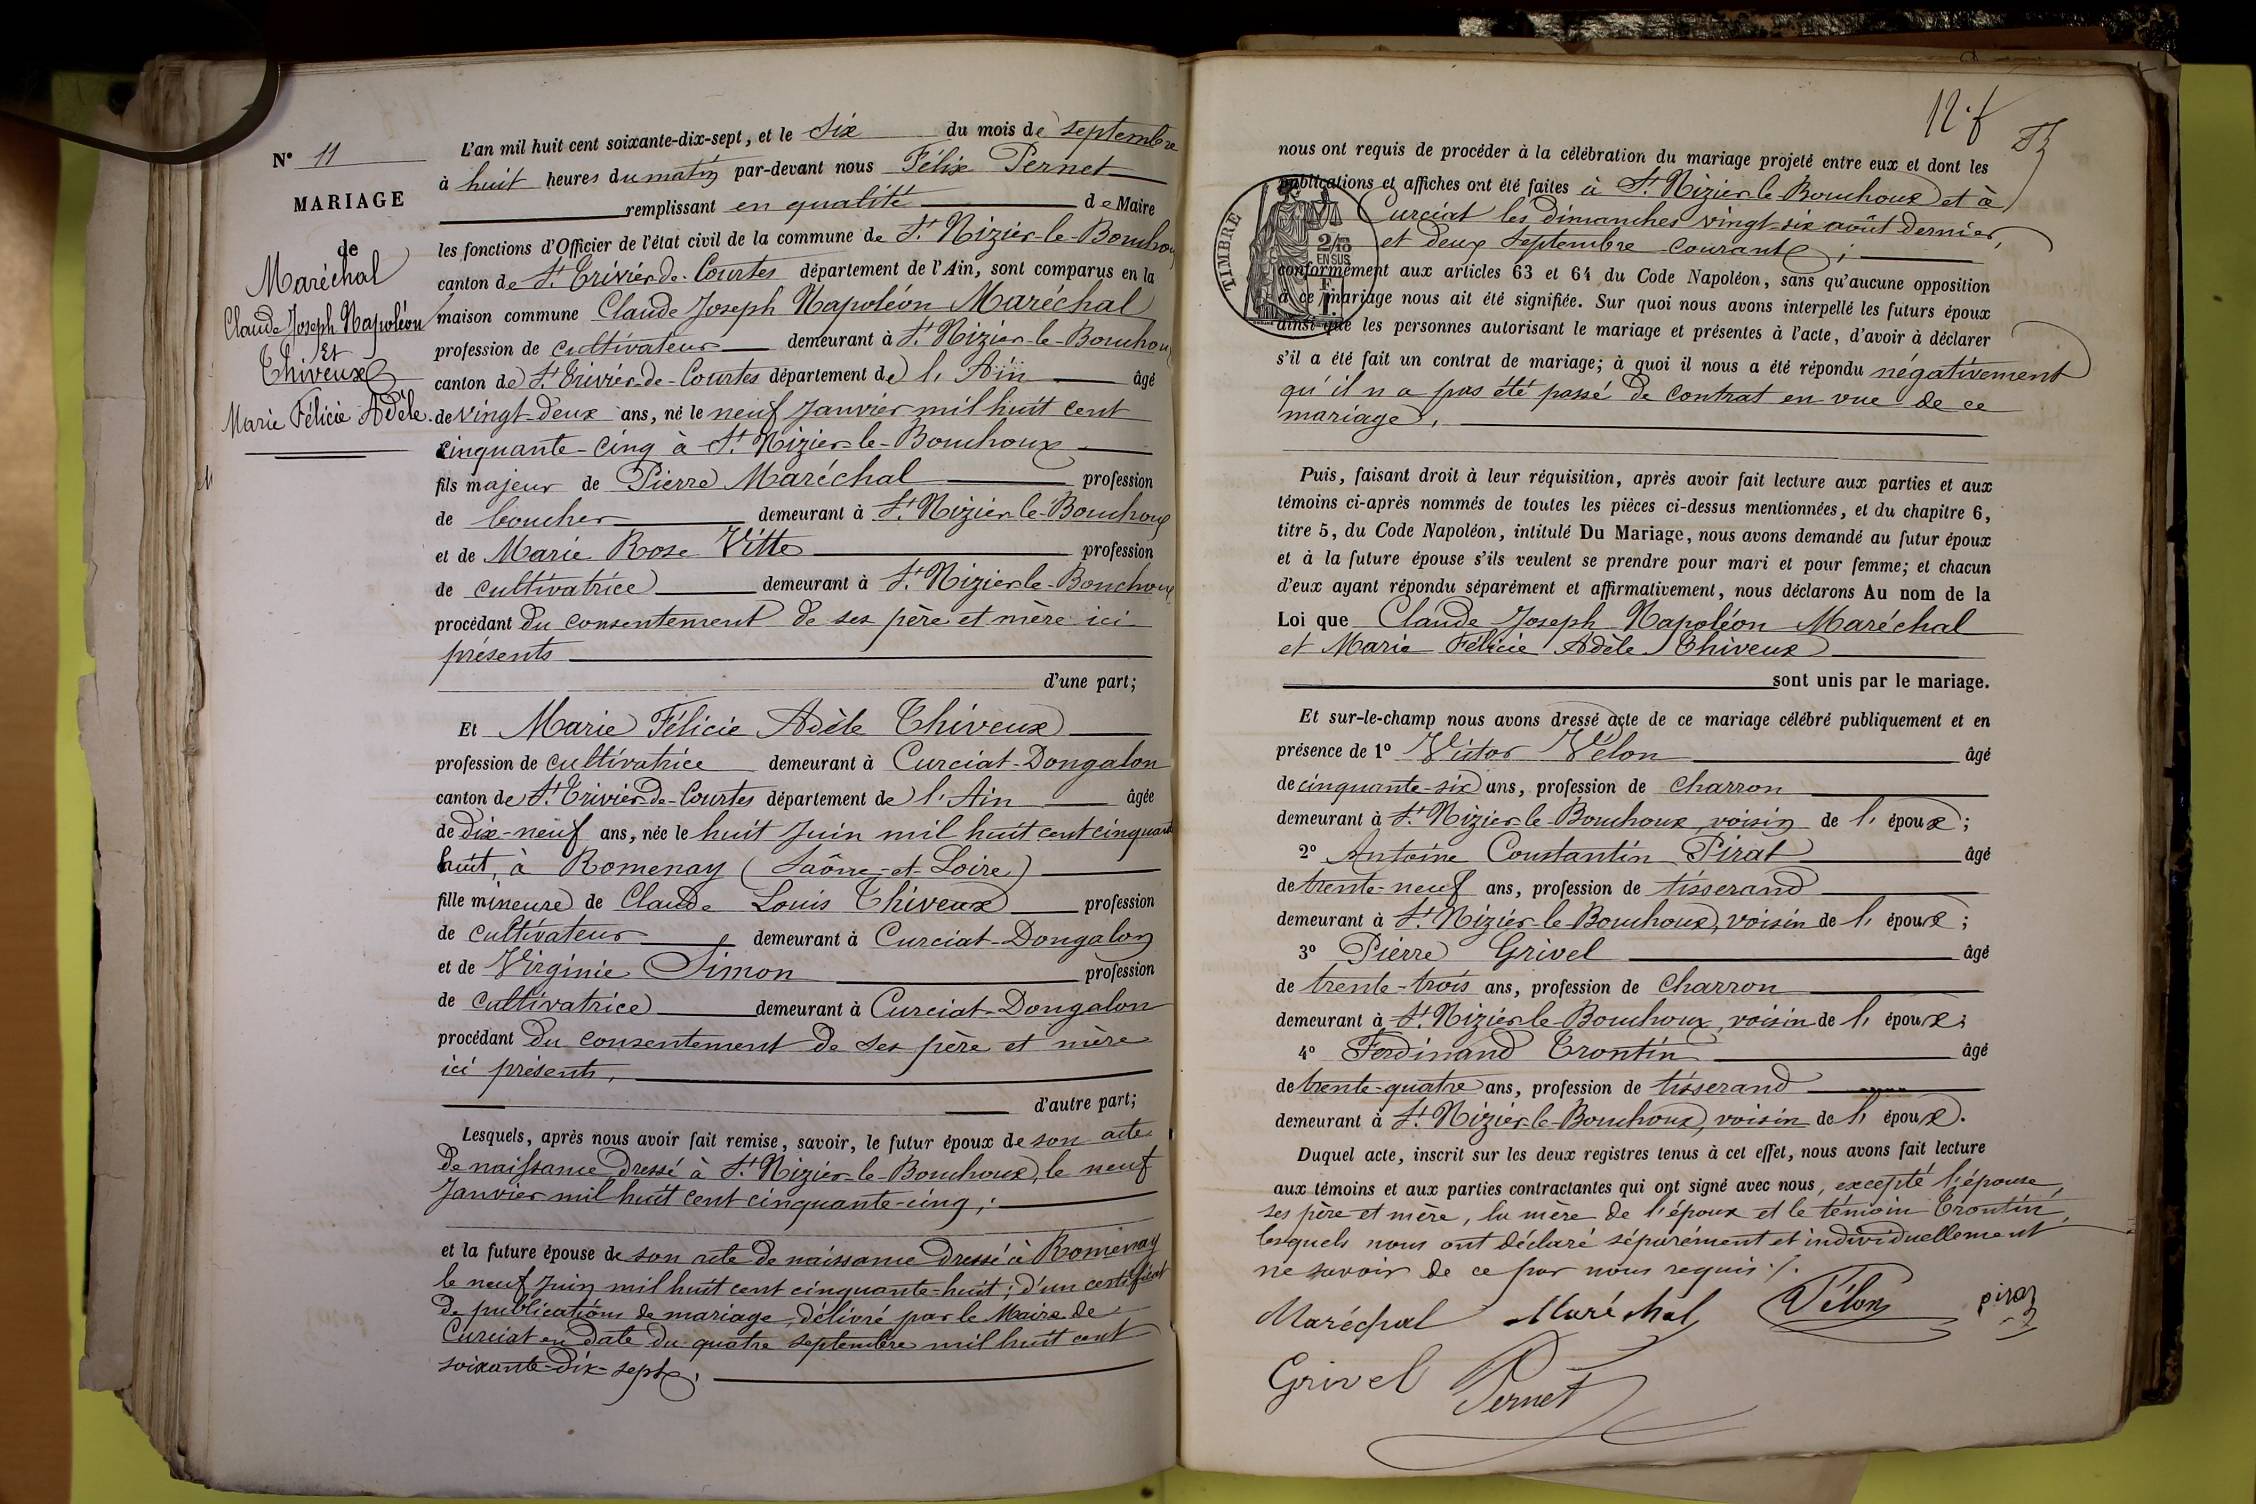 N° 11
MARIAGE
de
Maréchal
Claude Joseph Napoléon
Et
Thiveux
Marie Félicie Adèle.
L'an mil huit cent soixante-dix-sept, et le six du mois de septembre
à huit heures du matin par-devant nous Félix Pernet
remplissant en qualité de Maire
les fonctions d'Officier de l'état civil de la commune de St Nizier-le-Bouchoux
canton de St Trivier-de-Courtes département de l'Ain, sont comparus en la
maison commune Claude Joseph Napoléon Maréchal
profession de cultivateur demeurant à St Nizier-le-Bouchoux
canton de St Trivier-de-Courtes département de l'Ain âgé
de vingt-deux ans, né le neuf Janvier mil huit cent
cinquante-cinq à St Nizier-le-Bouchoux
fils majeur de Pierre Maréchal profession
de boucher demeurant à St Nizier-le-Bouchoux
et de Marie Rose Vitte profession
de cultivatrice demeurant à St Nizier-le-Bouchoux
procédant du consentement de ses père et mère ici
présents
d'une part;
Et Marie Félicie Adèle Thiveux
profession de cultivatrice demeurant à Curciat-Dongalon
canton de St Trivier-de-Courtes département de l'Ain âgée
de dix-neuf ans, née le huit Juin mil huit cent cinquante
huit, à Romenay (Saône-et-Loire)
fille mineure de Claude Louis Thiveux profession
de cultivateur demeurant à Curciat-Dongalon
et de Virginie Simon profession
de cultivatrice demeurant à Curciat-Dongalon
procédant du consentement de ses père et mère
ici présents,
d'autre part;
Lesquels, après nous avoir fait remise, savoir, le futur époux de son acte
de naissance dressé à St Nizier-le-Bouchoux, le neuf
Janvier mil huit cent cinquante-cinq;
et la future épouse de son acte de naissance dressé à Romenay
le neuf Juin mil huit cent cinquante-huit; d'un certificat
de publications de mariage délivré par le Maire de
Curciat en date du quatre septembre mil huit cent
soixante-dix-sept.
12.f
nous ont requis de procéder à la célébration du mariage projeté entre eux et dont les
publications et affiches ont été faites à St Nizier-le-Bouchoux et à
Curciat les dimanches vingt-six août dernier,
et deux septembre courant;
TIMBRE
2/10
EN SUS
conformément aux articles 63 et 64 du Code Napoléon, sans qu'aucune opposition
à ce mariage nous ait été signifiée. Sur quoi nous avons interpellé les futurs époux
ainsi que les personnes autorisant le mariage et présentes à l'acte, d'avoir à déclarer
s'il a été fait un contrat de mariage; à quoi il nous a été répondu négativement
qu'il n'a pas été passé de contrat en vue de ce
mariage,
Puis, faisant droit à leur réquisition, après avoir fait lecture aux parties et aux
témoins ci-après nommés de toutes les pièces ci-dessus mentionnées, et du chapitre 6,
titre 5, du Code Napoléon, intitulé Du Mariage, nous avons demandé au futur époux
et à la future épouse s'ils veulent se prendre pour mari et pour femme; et chacun
d'eux ayant répondu séparément et affirmativement, nous déclarons Au nom de la
Loi que Claude Joseph Napoléon Maréchal
et Marie Félicie Adèle Thiveux
sont unis par le mariage.
Et sur-le-champ nous avons dressé acte de ce mariage célébré publiquement et en
présence de 1° Victor Vélon âgé
de cinquante-six ans, profession de charron
demeurant à St Nizier-le-Bouchoux, voisin de l'époux;
2° Antoine Constantin Pirat âgé
de trente-neuf ans, profession de tisserand
demeurant à St Nizier-le-Bouchoux, voisin de l'époux;
3° Pierre Grivel âgé
de trente-trois ans, profession de charron
demeurant à St Nizier-le-Bouchoux, voisin de l'époux;
4° Ferdinand Trontin âgé
de trente-quatre ans, profession de tisserand
demeurant à St Nizier-le-Bouchoux, voisin de l'époux.
Duquel acte, inscrit sur les deux registres tenus à cet effet, nous avons fait lecture
aux témoins et aux parties contractantes qui ont signé avec nous, excepté l'épouse,
ses père et mère, la mère de l'époux et le témoin Trontin,
lesquels nous ont déclaré séparément et individuellement
ne savoir de ce par nous requis ./.
Maréchal Maréchal Vélon piraz
Grivel Pernet